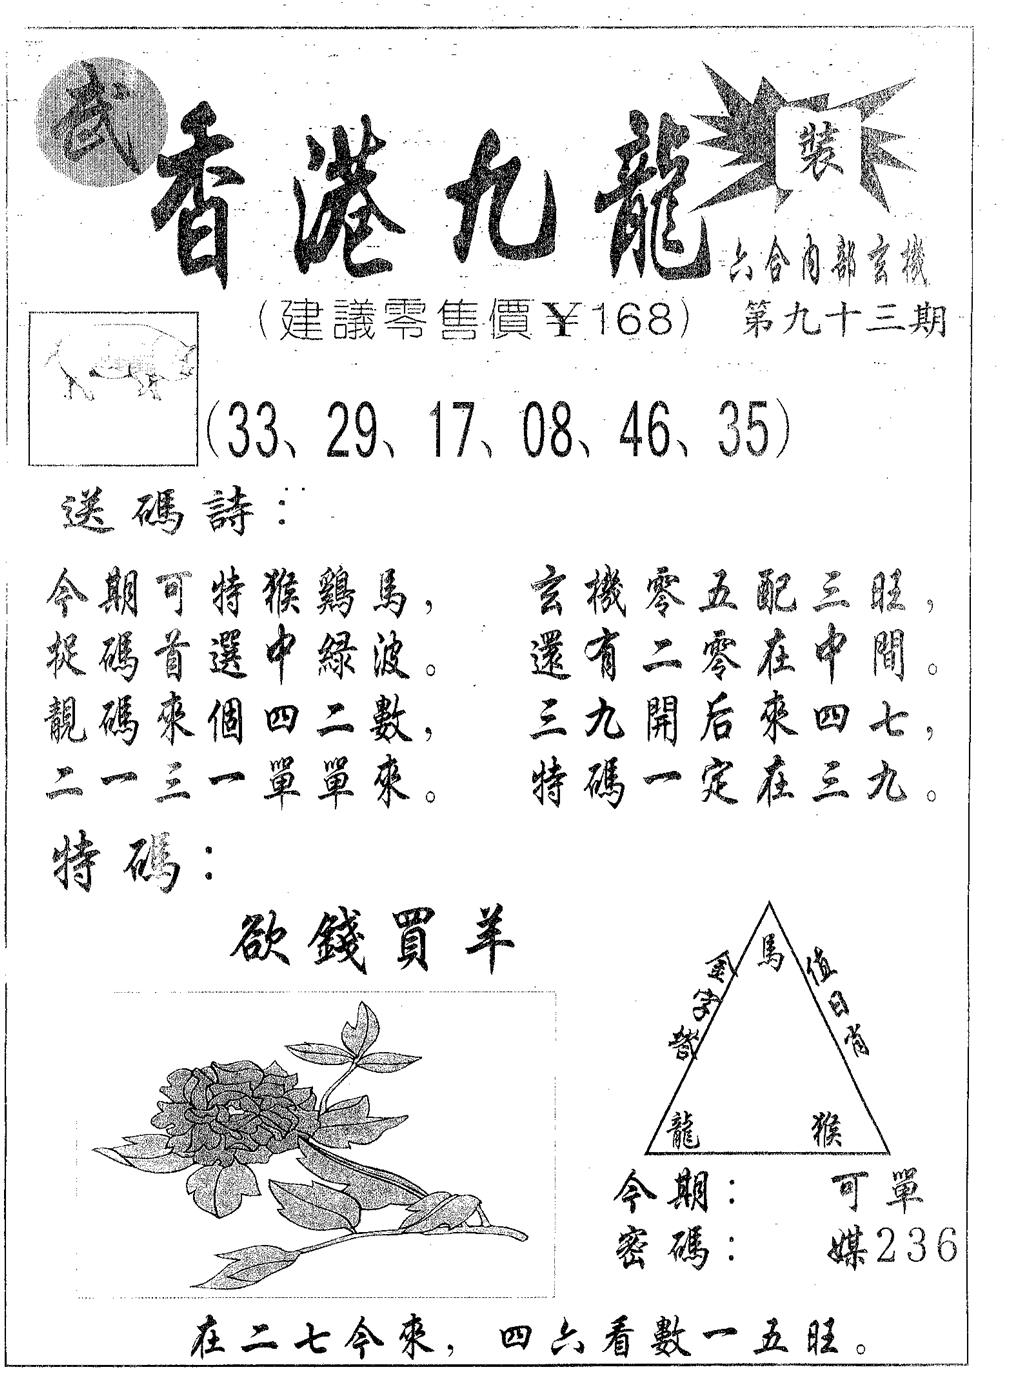 武
香港九龍
裝
六合內部玄機
(建議零售價¥168) 第九十三期
(33、29、17、08、46、35)
送碼詩：
今期可特猴鷄馬， 玄機零五配三旺，
捉碼首選中綠波。 還有二零在中間。
靚碼來個四二數， 三九開后來四七，
二一三一單單來。 特碼一定在三九。
特碼：
欲錢買羊
馬
金字 值日肖
龍 猴
今期： 可單
密碼： 媒236
在二七今來，四六看數一五旺。